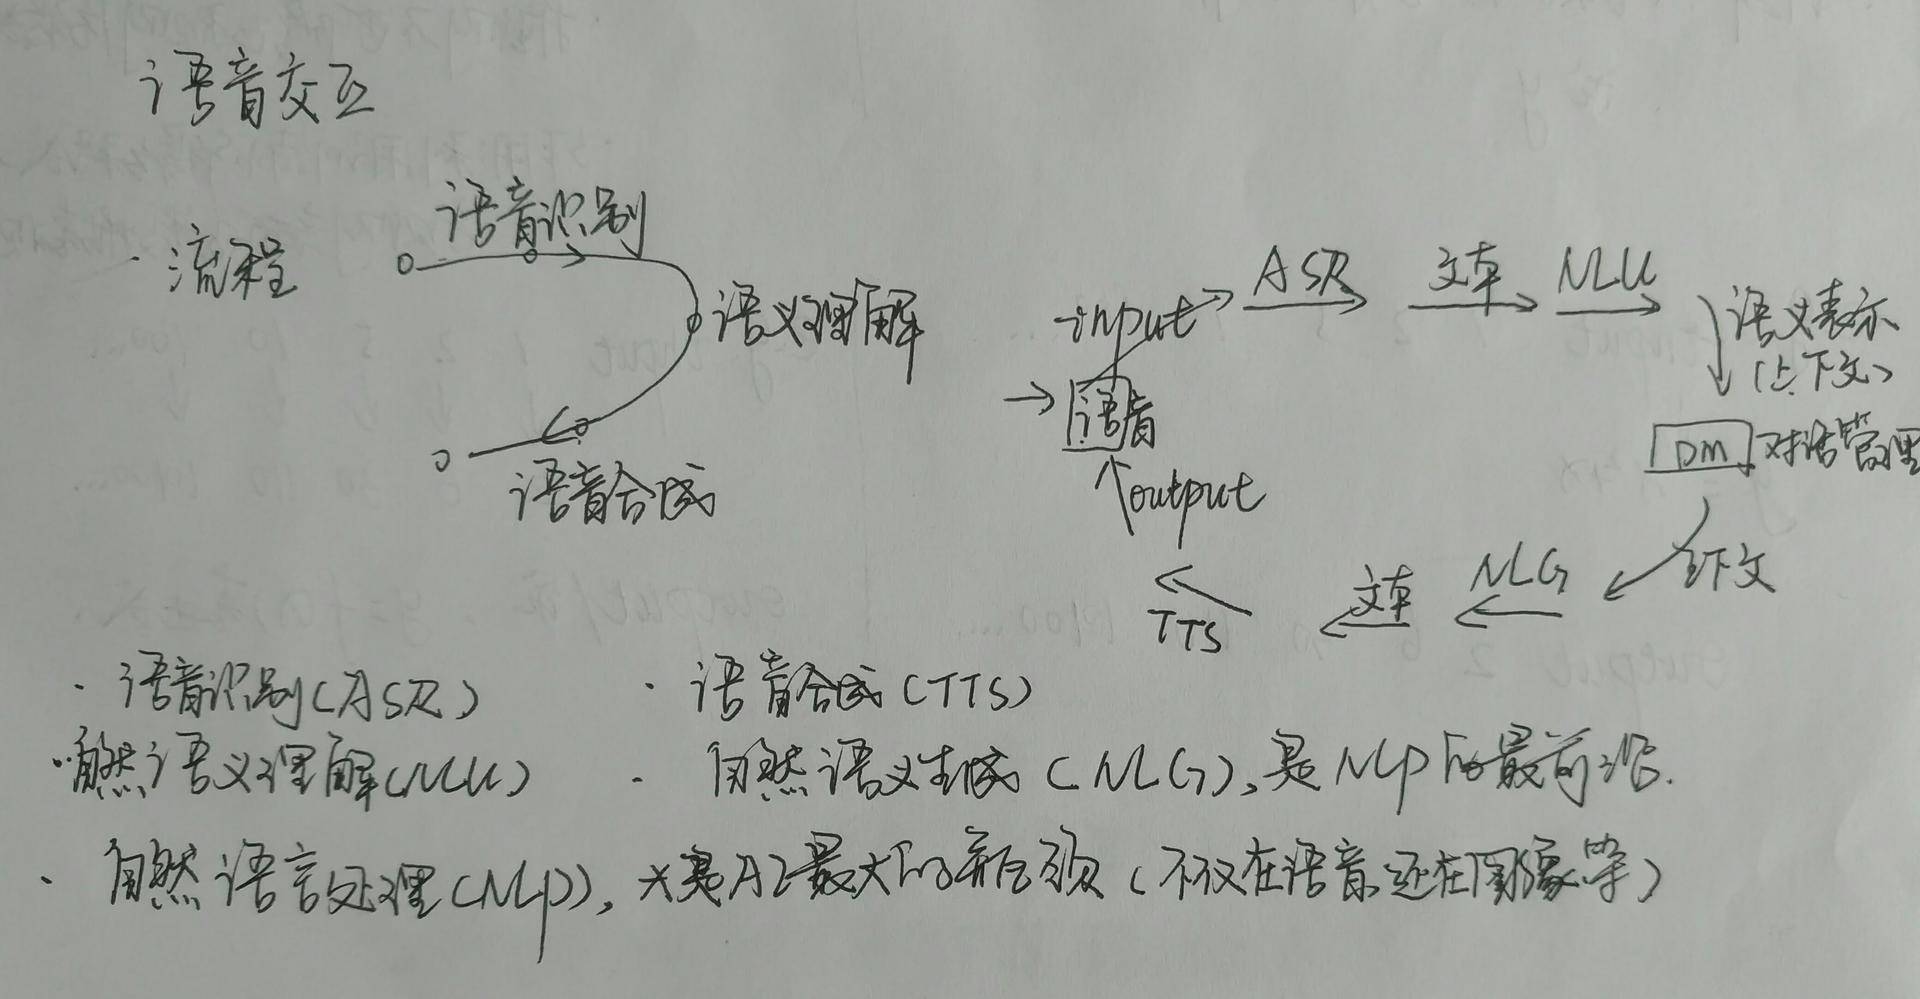 语音交互
· 流程
语音识别
语义理解
语音合成
input
ASR
文本
NLU
语义表示
(上下文)
DM 对话管理
下文
NLG
文本
TTS
output
语音
· 语音识别(ASR)
· 语音合成(TTS)
· 自然语义理解(NLU)
· 自然语义生成(NLG), 是NLP的最前沿.
· 自然语言处理(NLP), 是AI最大的瓶颈(不仅在语音还在图像等)